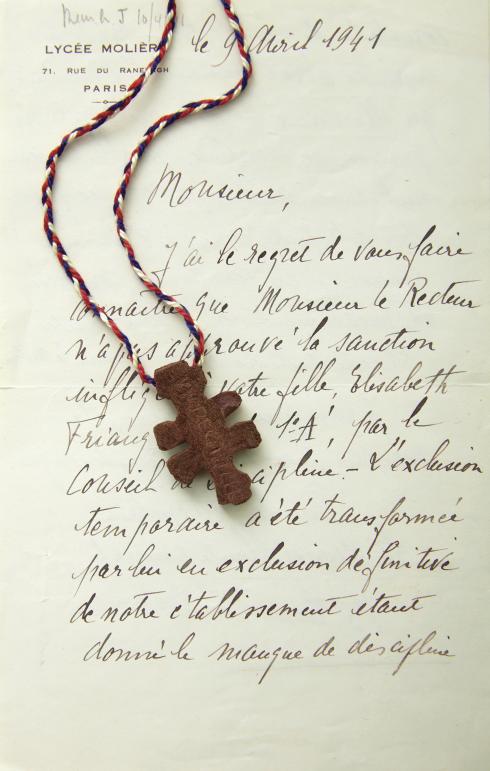 LYCÉE MOLIÈR
71. RUE DU RANE GH
PARIS
le 9 Avril 1941
Monsieur,
J'ai le regret de vous faire
connaître que Monsieur le Recteur
n'a pas approuvé la sanction
infligé votre fille, Elisabeth
Friang 1e A', par le
Conseil de iscipline - L'exclusion
temporaire a été transformée
par lui en exclusion définitive
de notre établissement étant
donné le manque de discipline